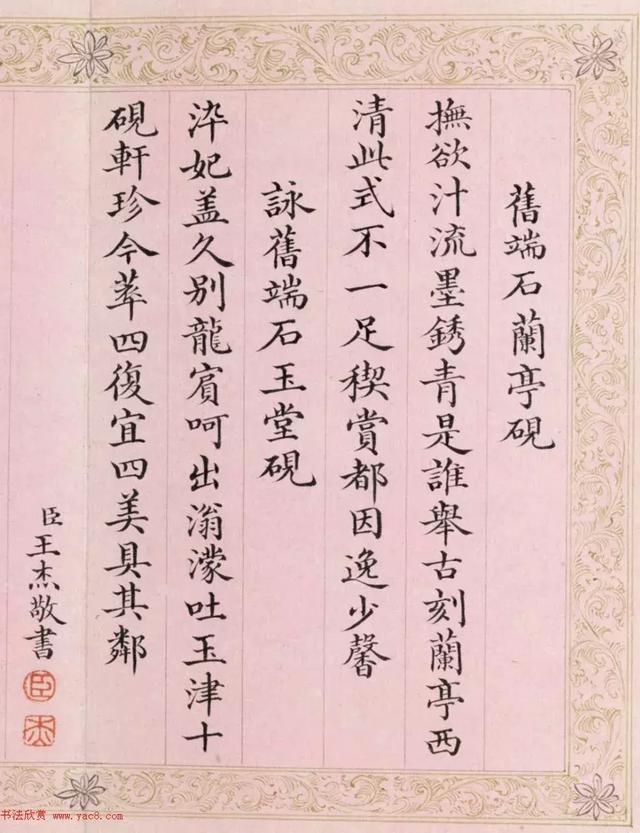 舊端石蘭亭硯
撫欲汁流墨銹青是誰舉古刻蘭亭西
清此式不一足稧賞都因逸少馨
詠舊端石玉堂硯
泋妃盖久別龍賓呵出滃濛吐玉津十
硯軒珍今萃四復宜四美具其鄰
臣王杰敬書
臣
杰
书法欣赏 www.yac8.com